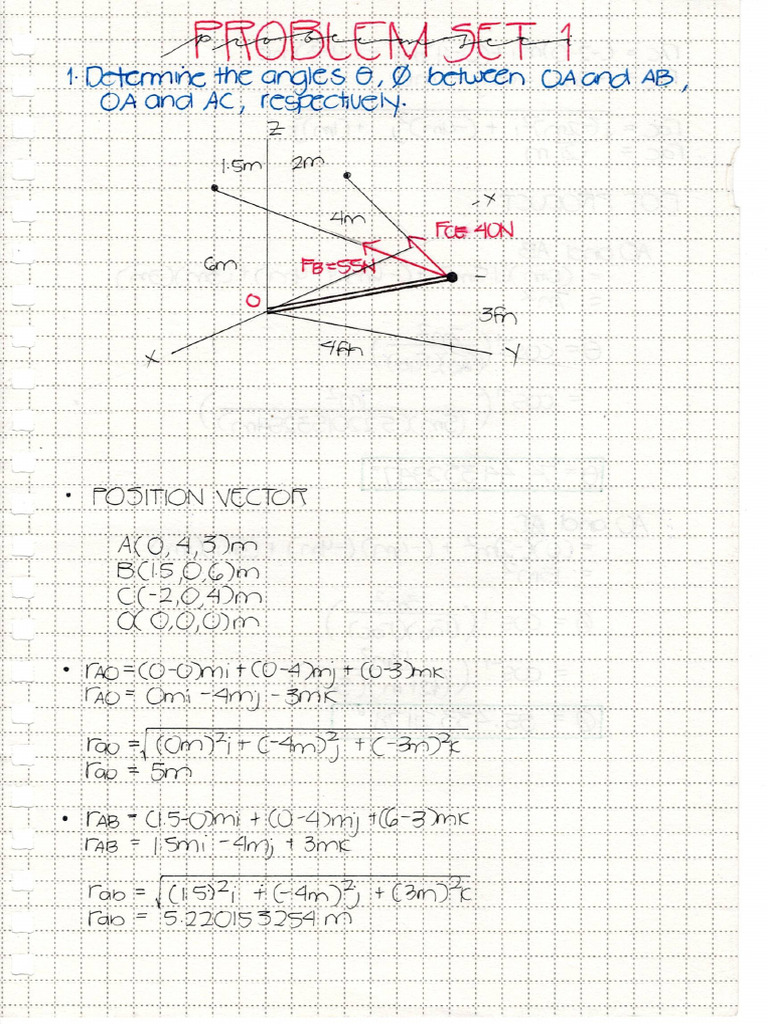 PROBLEM SET 1
problem set
1. Determine the angles θ, Ø between OA and AB,
OA and AC, respectively.
Z
1.5m 2m
-X
4m
FC= 40N
6m
FB=55N
O
3m
4m
X
Y
• POSITION VECTOR
A(0,4,3)m
B(1.5,0,6)m
C(-2,0,4)m
O(0,0,0)m
• rAO=(0-0)mi+(0-4)mj+(0-3)mk
rAO= 0mi-4mj-3mk
rao=√(0m)²i+(-4m)²j+(-3m)²k
rao = 5m
• rAB=(1.5-0)mi+(0-4)mj+(6-3)mk
rAB=1.5mi-4mj+3mk
rab=√(1.5)²i+(-4m)²j+(3m)²k
rab = 5.220153254 m